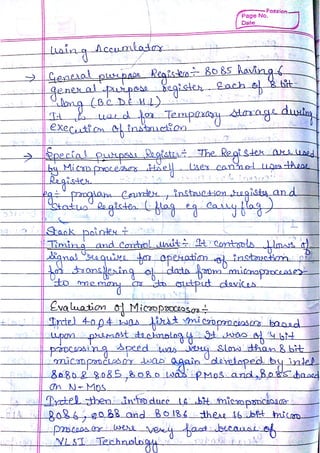 Passion
Page No.
Date
Using Accumlator
→ General purpose Register÷ 8085 having 6
general purpose register. Each of 8 bit
long (B C D E H L)
It is used for Temporary storage during
execution of instruction
→ Special purpose Register÷ The Register are used
by Microprocessor itself. User cannot use these
Register
eg÷ program counter, instruction registy and
Status Register (flag eg Carry flag)
Stack pointer÷
Timing and control unit÷ It controls flows of
Signal require for operation of instruction
for transfering of data from microprocesser
to memory or to output devices
Evaluation of Microprocessor÷
Intel 4004 was first microprocessor based
upon technology. It was of 4 bit
processing speed was very slow than 8 bit
microprocessor was again developed by intel
8080 & 8085, 8080 was PMOS and, 8085 based
on N-MOS
Intel then introduce 16 bit microprocessor
8086, 8088 and 80186 these 16 bit micro
processor were very fast because of
VLSI Technology